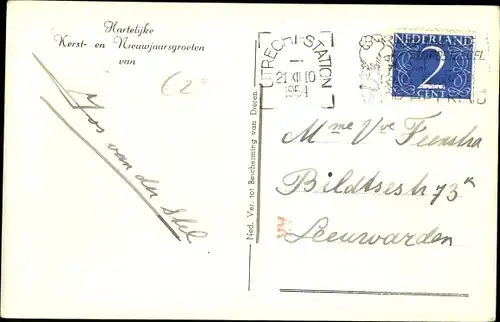 Hartelijke
Kerst- en Nieuwjaarsgroeten
van
Jos van der Stel
Ned. Ver. tot Bescherming van Dieren
UTRECHT-STATION
21 XII 10
1954
NEDERLAND
2
CENT
Mme Vve Feenstra
Bildtsestr 73k
Leeuwarden